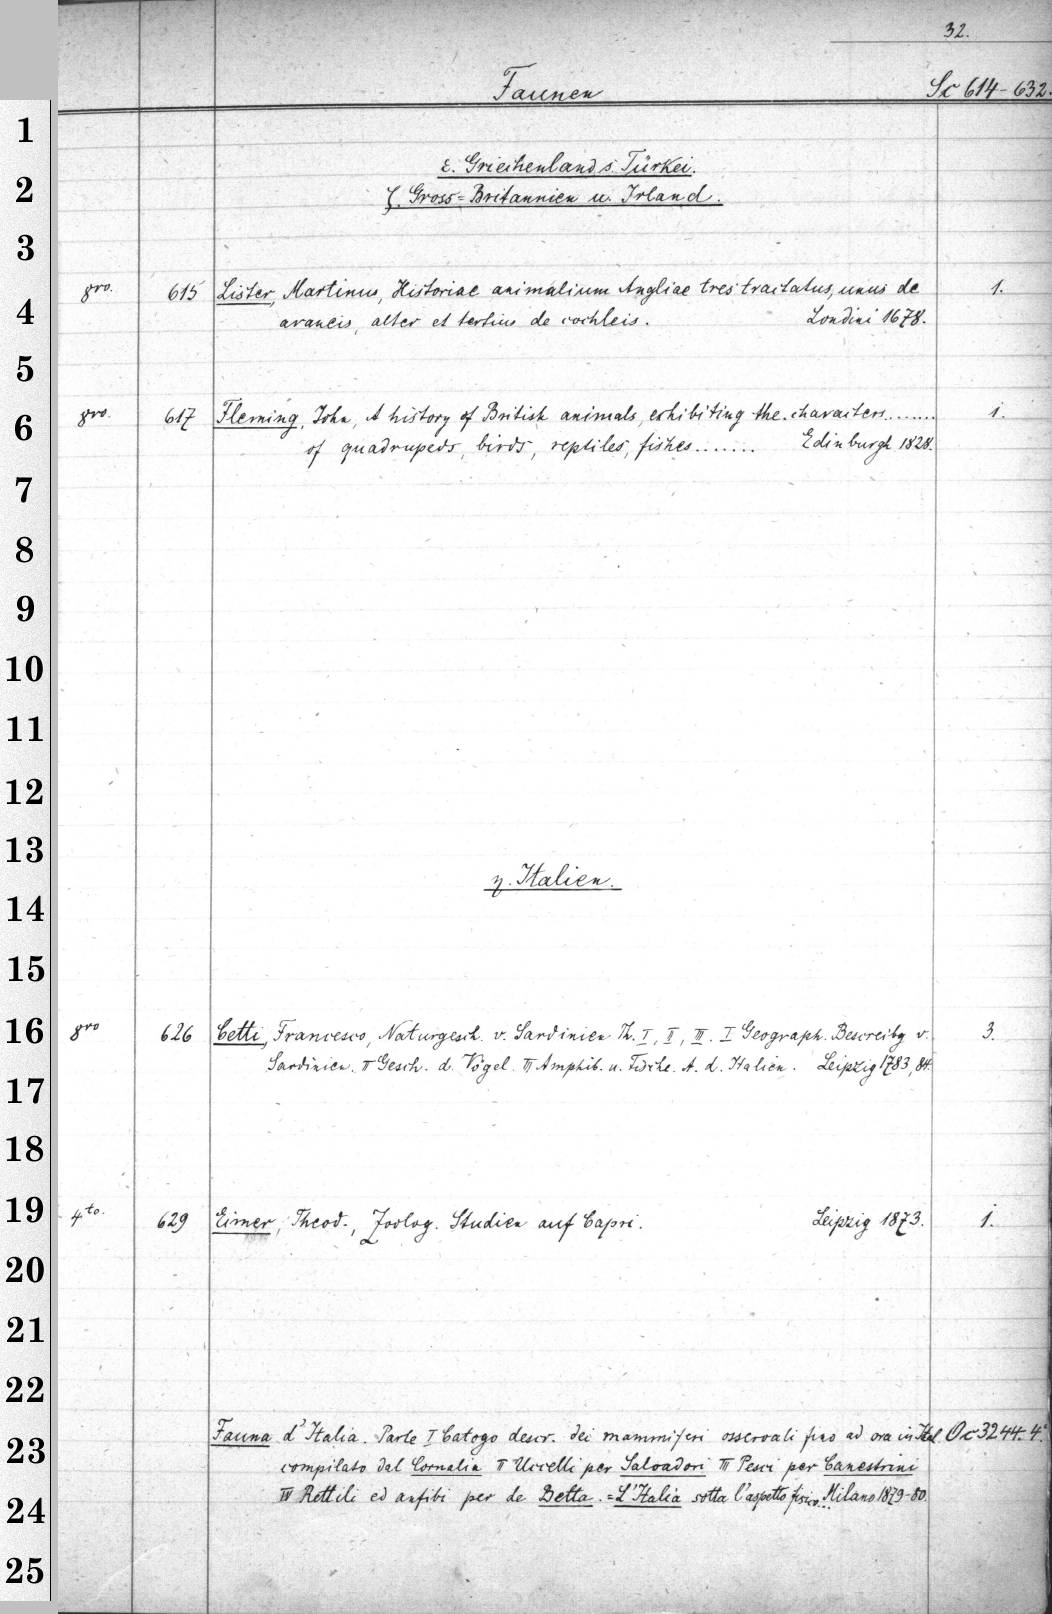 32.
Faunen Sc 614-632.
1
ε. Griechenland s. Türkei.
2
ζ. Gross-Britannien u. Irland.
3
8vo. 615 Lister, Martinus, Historiae animalium Angliae tres tractatus, unus de 1.
4
araneis, alter et tertius de cochleis. Londini 1678.
5
8vo. 617 Fleming, John, A history of British animals, exhibiting the characters....... 1.
6
of quadrupeds, birds, reptiles, fishes....... Edinburgh 1828.
7
8
9
10
11
12
13
η. Italien.
14
15
16
8vo 626 Cetti, Francesco, Naturgesch. v. Sardinien Th. I, II, III. I Geograph. Bescreibg v. 3.
Sardinien. II Gesch. d. Vögel. III Amphib. u. Fische. A. d. Italien. Leipzig 1783, 84.
17
18
19
4to. 629 Eimer, Theod., Zoolog. Studien auf Capri. Leipzig 1873. 1.
20
21
22
Fauna d'Italia. Parte I Catogo descr. dei mammiferi osservati fino ad ora in Ital Oc 3244. 4°
23
compilato dal Cornalia II Uccelli per Salvadori III Pesci per Canestrini
IV Rettili ed anfibi per de Betta. = L'Italia sotta l'aspetto fisico... Milano 1879-80.
24
25